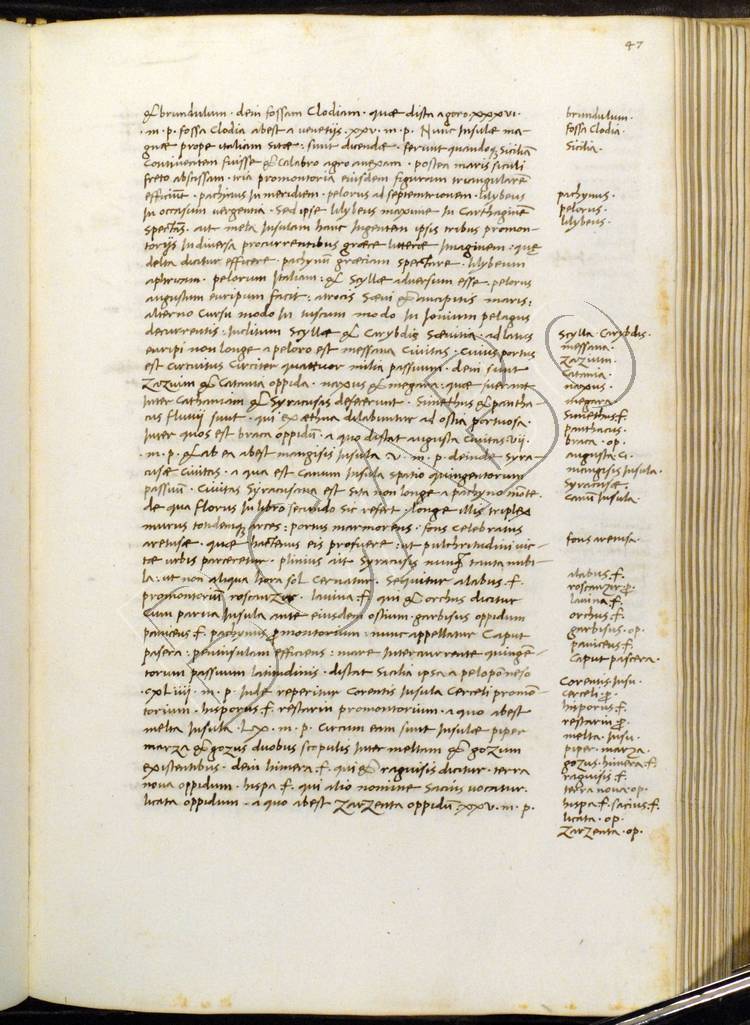 47
& brundulum . dein fossam Clodiam . quæ distat agoro xxxvi .
. m . p . fossa Clodia abest a venetijs . xxv . m . p . Nunc Insulæ ma-
gnæ prope italiam sitæ : sunt dicendæ . ferunt quandoq; Siciliã
Continentem fuisse & Calabro agro anexam . postea maris siculi
freto abscissam . tria promontoria eiusdem figuram triangularẽ
efficiũt . pachinus In meridiem . pelorus ad septentrionem . lilybeus
In occasum vergentia . Sed ipse lilybeus maxime In Carthaginẽ
spectãs . ait mela Insulam hanc Ingentem ipsis tribus promon-
torijs In diversa procurrentibus græcæ litteræ Imaginem : quę
delta dicitur efficere . pachynũ græciam spectare . lilybeum
aphricam . pelorum Italiam : & Scyllæ adversum esse . pelorus
angustum euripum facit : atrocis Sævi & ancipitis maris :
alterno Cursu modo In tuscum modo In Ionium pelagus
decurrentis : Inclitum Scyllæ & Carybdis Sævitia . ad latus
euripi non longe a peloro est messana Civitas . Cuius portus
est circuitus Circiter quattuor milia passuum . dein sunt
Zazuim & Catania oppida . naxus & megara : quæ fuerunt
Inter Cathaniam & Syracusas defecerunt . Simethus & pantha-
cus fluvij sunt . qui ex æthna dilabuntur ad ostia portuosa .
Inter quos est braca oppidũ . a quo distat augusta Civitas . vii .
. m . p . & ab ea abest mangisis Insula v . m . p . deinde Syra-
cusæ Civitas . a qua est Canum Insula spatio quingentorum
passuũ . Civitas Syracusana est sita non longe a pachyno mõte .
de qua florus In libro secundo sic refert . longe illis triplex
murus totidemq; arces : portus marmoreus . fons Celebratus
aretusæ . quæ hactenus eis profuere : ut pulchritudini vic-
tæ urbis parceretur . plinius ait Syracusis nunq̃ tanta nubi-
la : ut non aliqua hora sol Cernatur . Sequitur alabus . f .
promontoriũ roscarzir . lavina . f . qui & orchus dicitur
Cum parva Insula ante eiusdem ostium . garbisus oppidum
paniceus . f . pachynus p̃montorium : nunc appellatur Caput
pasera : peninsulam efficiens : mare Intercurrente quingẽ-
torum passuum latitudinis . distat Sicilia ipsa a peloponeso
. cxLiiii . m . p . Inde reperitur Corentis Insula Cerceli promõ-
torium . hisporus . f . restarin promontorium . a quo abest
melta Insula . Lx . m . p . Circum eam sunt Insulæ piper
marza & gozus duobus scopulis Inter meltam & gozum
existentibus . dein himera . f . qui & raguisis dicitur . terra
nova oppidum . hispa . f . qui alio nomine Sacius vocatur .
licata oppidum . a quo abest Zarzenta oppidũ . xxv . m . p .
brundulum .
fossa Clodia .
Sicilia .
pachynus .
pelorus .
lilybeus .
Scylla . Carybdis .
messana .
Zazuim .
Catania .
naxus .
megara .
Simethus . f .
panthacus .
braca . op .
augusta . ci .
mangisis Insula .
Syracusæ .
Canũ Insula .
fons aretusa .
alabus . f .
roscarzir . p̃ .
lavina . f .
orchus . f .
garbisus . op .
paniceus . f .
Caput pascera .
Corentis Insu .
Cerceli . p̃ .
hisporus . f .
restarin . p̃ .
melta . Insu .
piper . marza .
gozus . himera . f .
raguisis . f .
terra nova . op .
hispa . f . sacius . f .
licata . op .
Zarzenta . op .